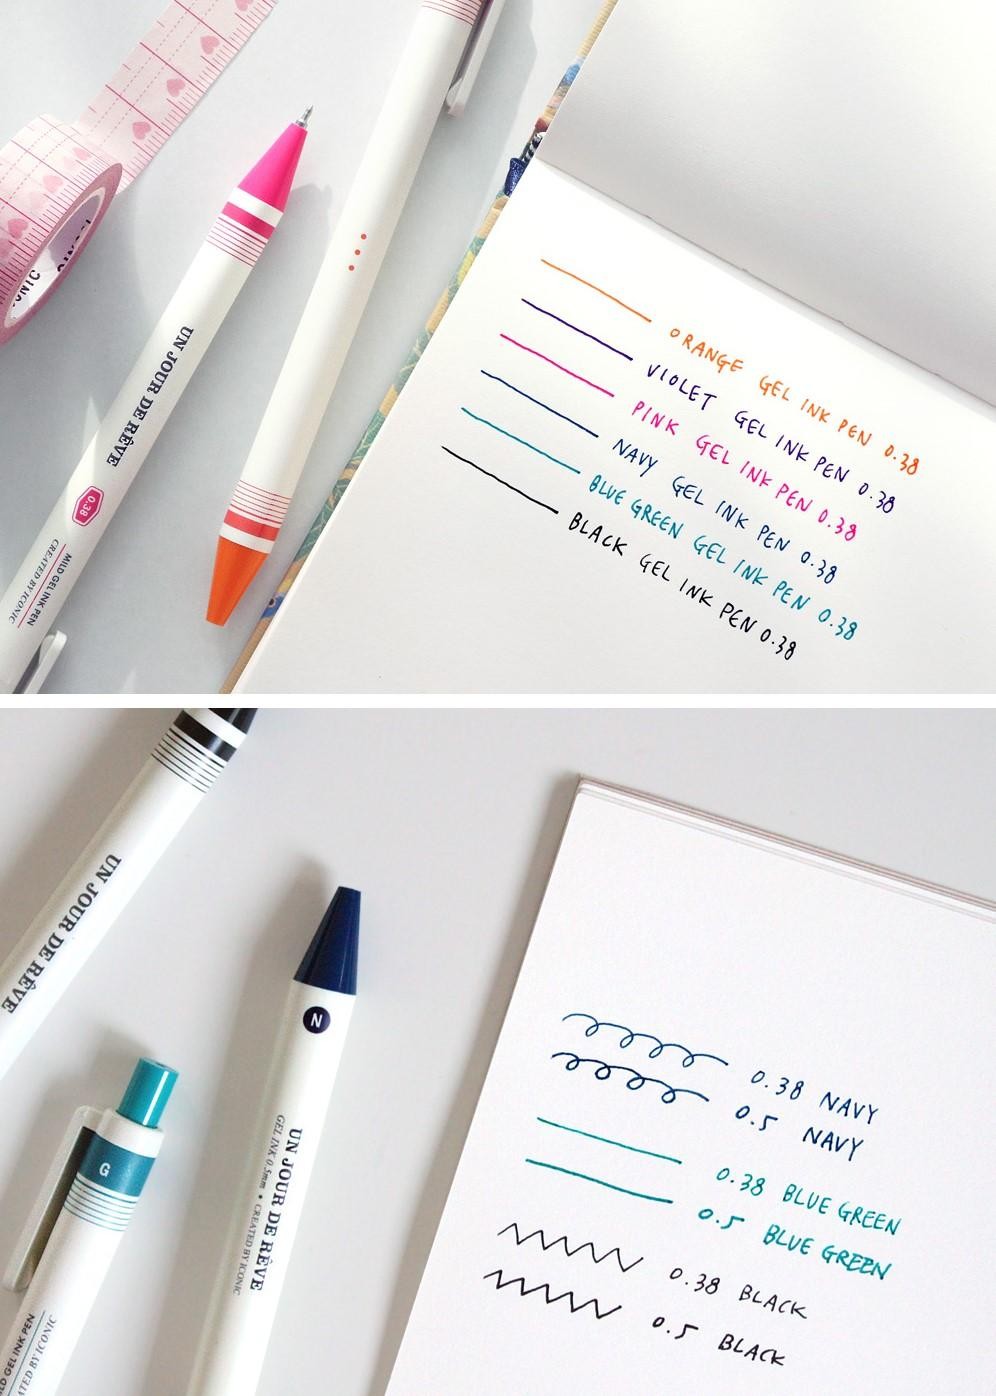 ONIC
UN JOUR DE RÊVE
0.38
MILD GEL INK PEN
CREATED BY ICONIC
ORANGE GEL INK PEN 0.38
VIOLET GEL INK PEN 0.38
PINK GEL INK PEN 0.38
NAVY GEL INK PEN 0.38
BLUE GREEN GEL INK PEN 0.38
BLACK GEL INK PEN 0.38
UN JOUR DE RÊVE
N
UN JOUR DE RÊVE
GEL INK 0.5mm • CREATED BY ICONIC
G
LD GEL INK PEN
ATED BY ICONIC
0.38 NAVY
0.5 NAVY
0.38 BLUE GREEN
0.5 BLUE GREEN
0.38 BLACK
0.5 BLACK